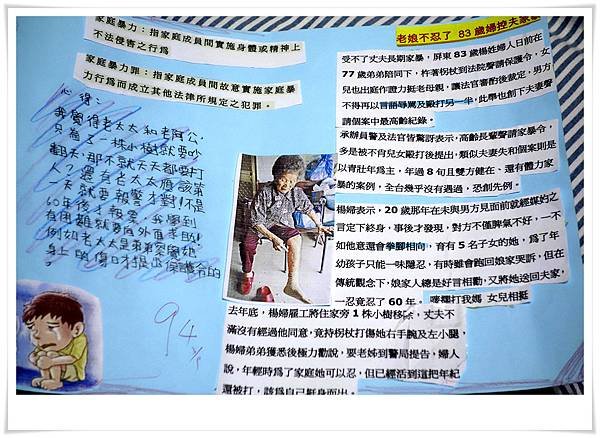 家庭暴力：指家庭成員間實施身體或精神上
不法侵害之行為
家庭暴力罪：指家庭成員間故意實施家庭暴
力行為而成立其他法律所規定之犯罪。
心得：
我覺得老太太和老阿公，
只為了一株小樹就要吵
翻天，那不就天天都要打
人？還有老太太應該第
一天就要報警才對！不是
60年後才報警，我學到
有困難就要向外面求助！
例如老太太是弟弟容貌她
身上的傷口才提出保護令的
94
老娘不忍了 83歲婦控夫家暴
受不了丈夫長期家暴，屏東83歲楊姓婦人日前在
77歲弟弟陪同下，杵著柺杖到法院聲請保護令，女
兒也出庭作證力挺老母親，讓法官審酌後裁定，男方
不得再以言語辱罵及毆打另一半，此舉也創下夫妻聲
請個案中最高齡紀錄。
承辦員警及法官皆驚訝表示，高齡長輩聲請家暴令，
多是被不肖兒女毆打後提出，類似夫妻失和個案則是
以青壯年為主，年過8旬且雙方健在、還有體力家
暴的案例，全台幾乎沒有遇過，恐創先例。
楊婦表示，20歲那年在未與男方見面前就經媒妁之
言定下終身，事後才發現，對方不僅脾氣不好，一不
如他意還會拳腳相向，育有5名子女的她，為了年
幼孩子只能一味隱忍，有時雖會跑回娘家哭訴，但在
傳統觀念下，娘家人總是好言相勸，又將她送回夫家，
一忍竟忍了60年。
甭擱打我媽 女兒相挺
去年底，楊婦雇工將住家旁1株小樹移除，丈夫不
滿沒有經過他同意，竟持柺杖打傷她右手腕及左小腿，
楊婦弟弟獲悉後極力勸說，要老姊到警局提告，婦人
說，年輕時為了家庭她可以忍，但已經活到這把年紀
還被打，該為自己挺身而出。